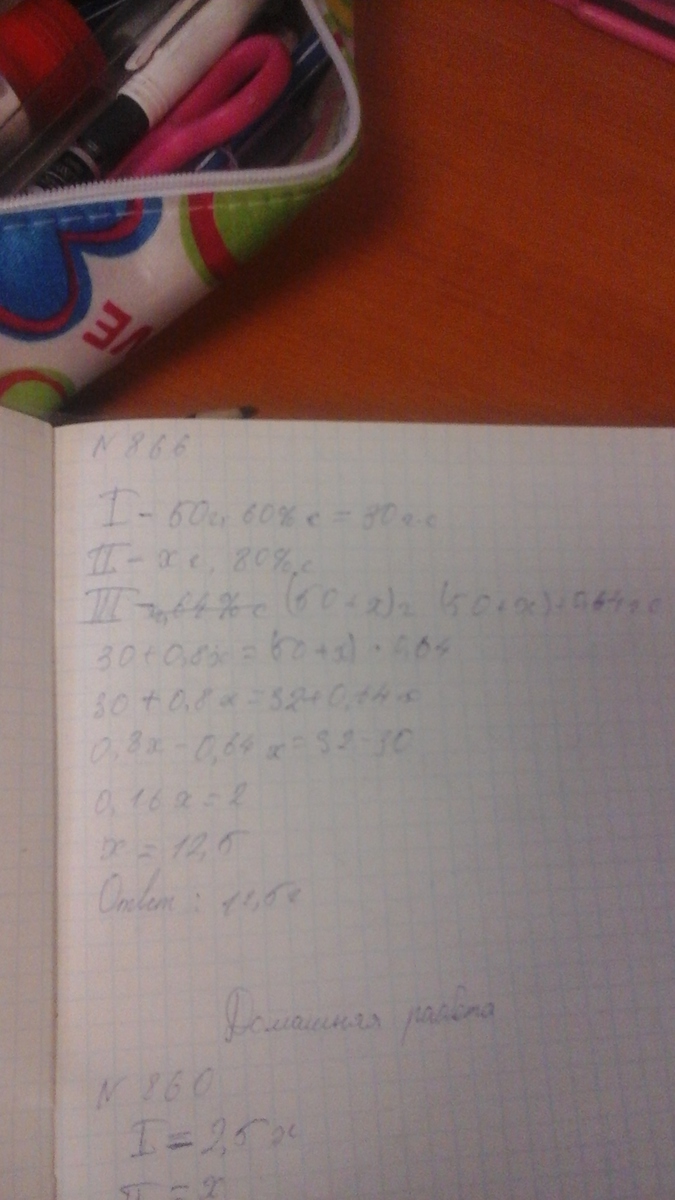 VE
N 866
I - 50 г, 60% с = 30 г с
II - x г, 80% с
III - 64% с (50+x) г (50+x)·0,64 г с
30+0,8x=(50+x)·0,64
30+0,8x=32+0,64x
0,8x-0,64x=32-30
0,16x=2
x=12,5
Ответ: 12,5г
Домашняя работа
N 860
I = 2,5x
II = x